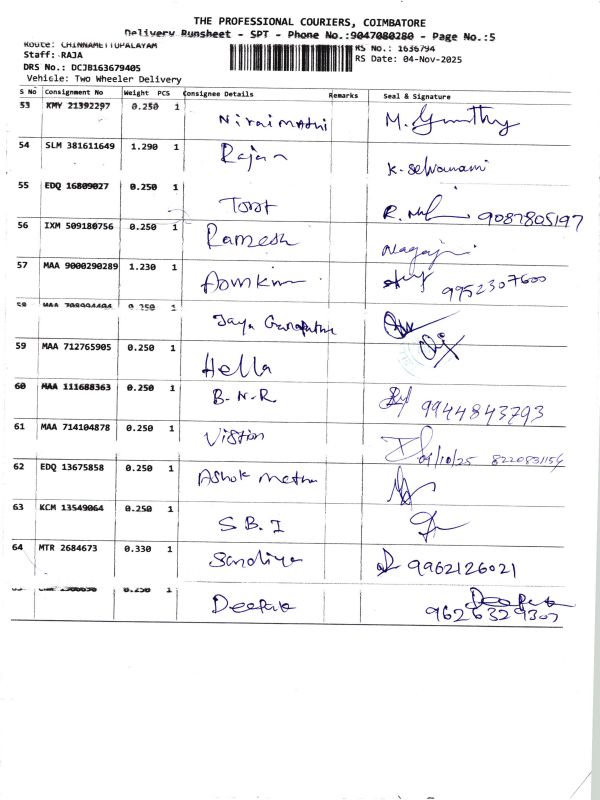 THE PROFESSIONAL COURIERS, COIMBATORE
Delivery Runsheet - SPT - Phone No.:9047080280 - Page No.:5
Route: CHINNAMETTUPALAYAM
Staff: RAJA
DRS No.: DCJB163679405
Vehicle: Two Wheeler Delivery
RS No.: 1636794
RS Date: 04-Nov-2025
S No Consignment No Weight PCS Consignee Details Remarks Seal & Signature
53 KMY 21392297 0.250 1
Niraimathi M.
54 SLM 381611649 1.290 1
Rajan K. Selvamani
55 EDQ 16809027 0.250 1
R. 9087805197
56 IXM 509180756 0.250 1
Ramesh
57 MAA 9000290289 1.230 1
9952307600
58 MAA 0.250 1
Jaya Ganapathi
59 MAA 712765905 0.250 1
Hella
60 MAA 111688363 0.250 1
B.N.R 9944843793
61 MAA 714104878 0.250 1
Vision /10/25 8220831154
62 EDQ 13675858 0.250 1
Ashok
63 KCM 13549064 0.250 1
S.B.I
64 MTR 2684673 0.330 1
Sandiya 9962126021
0.250 1
Deepak Deepak
9626329307